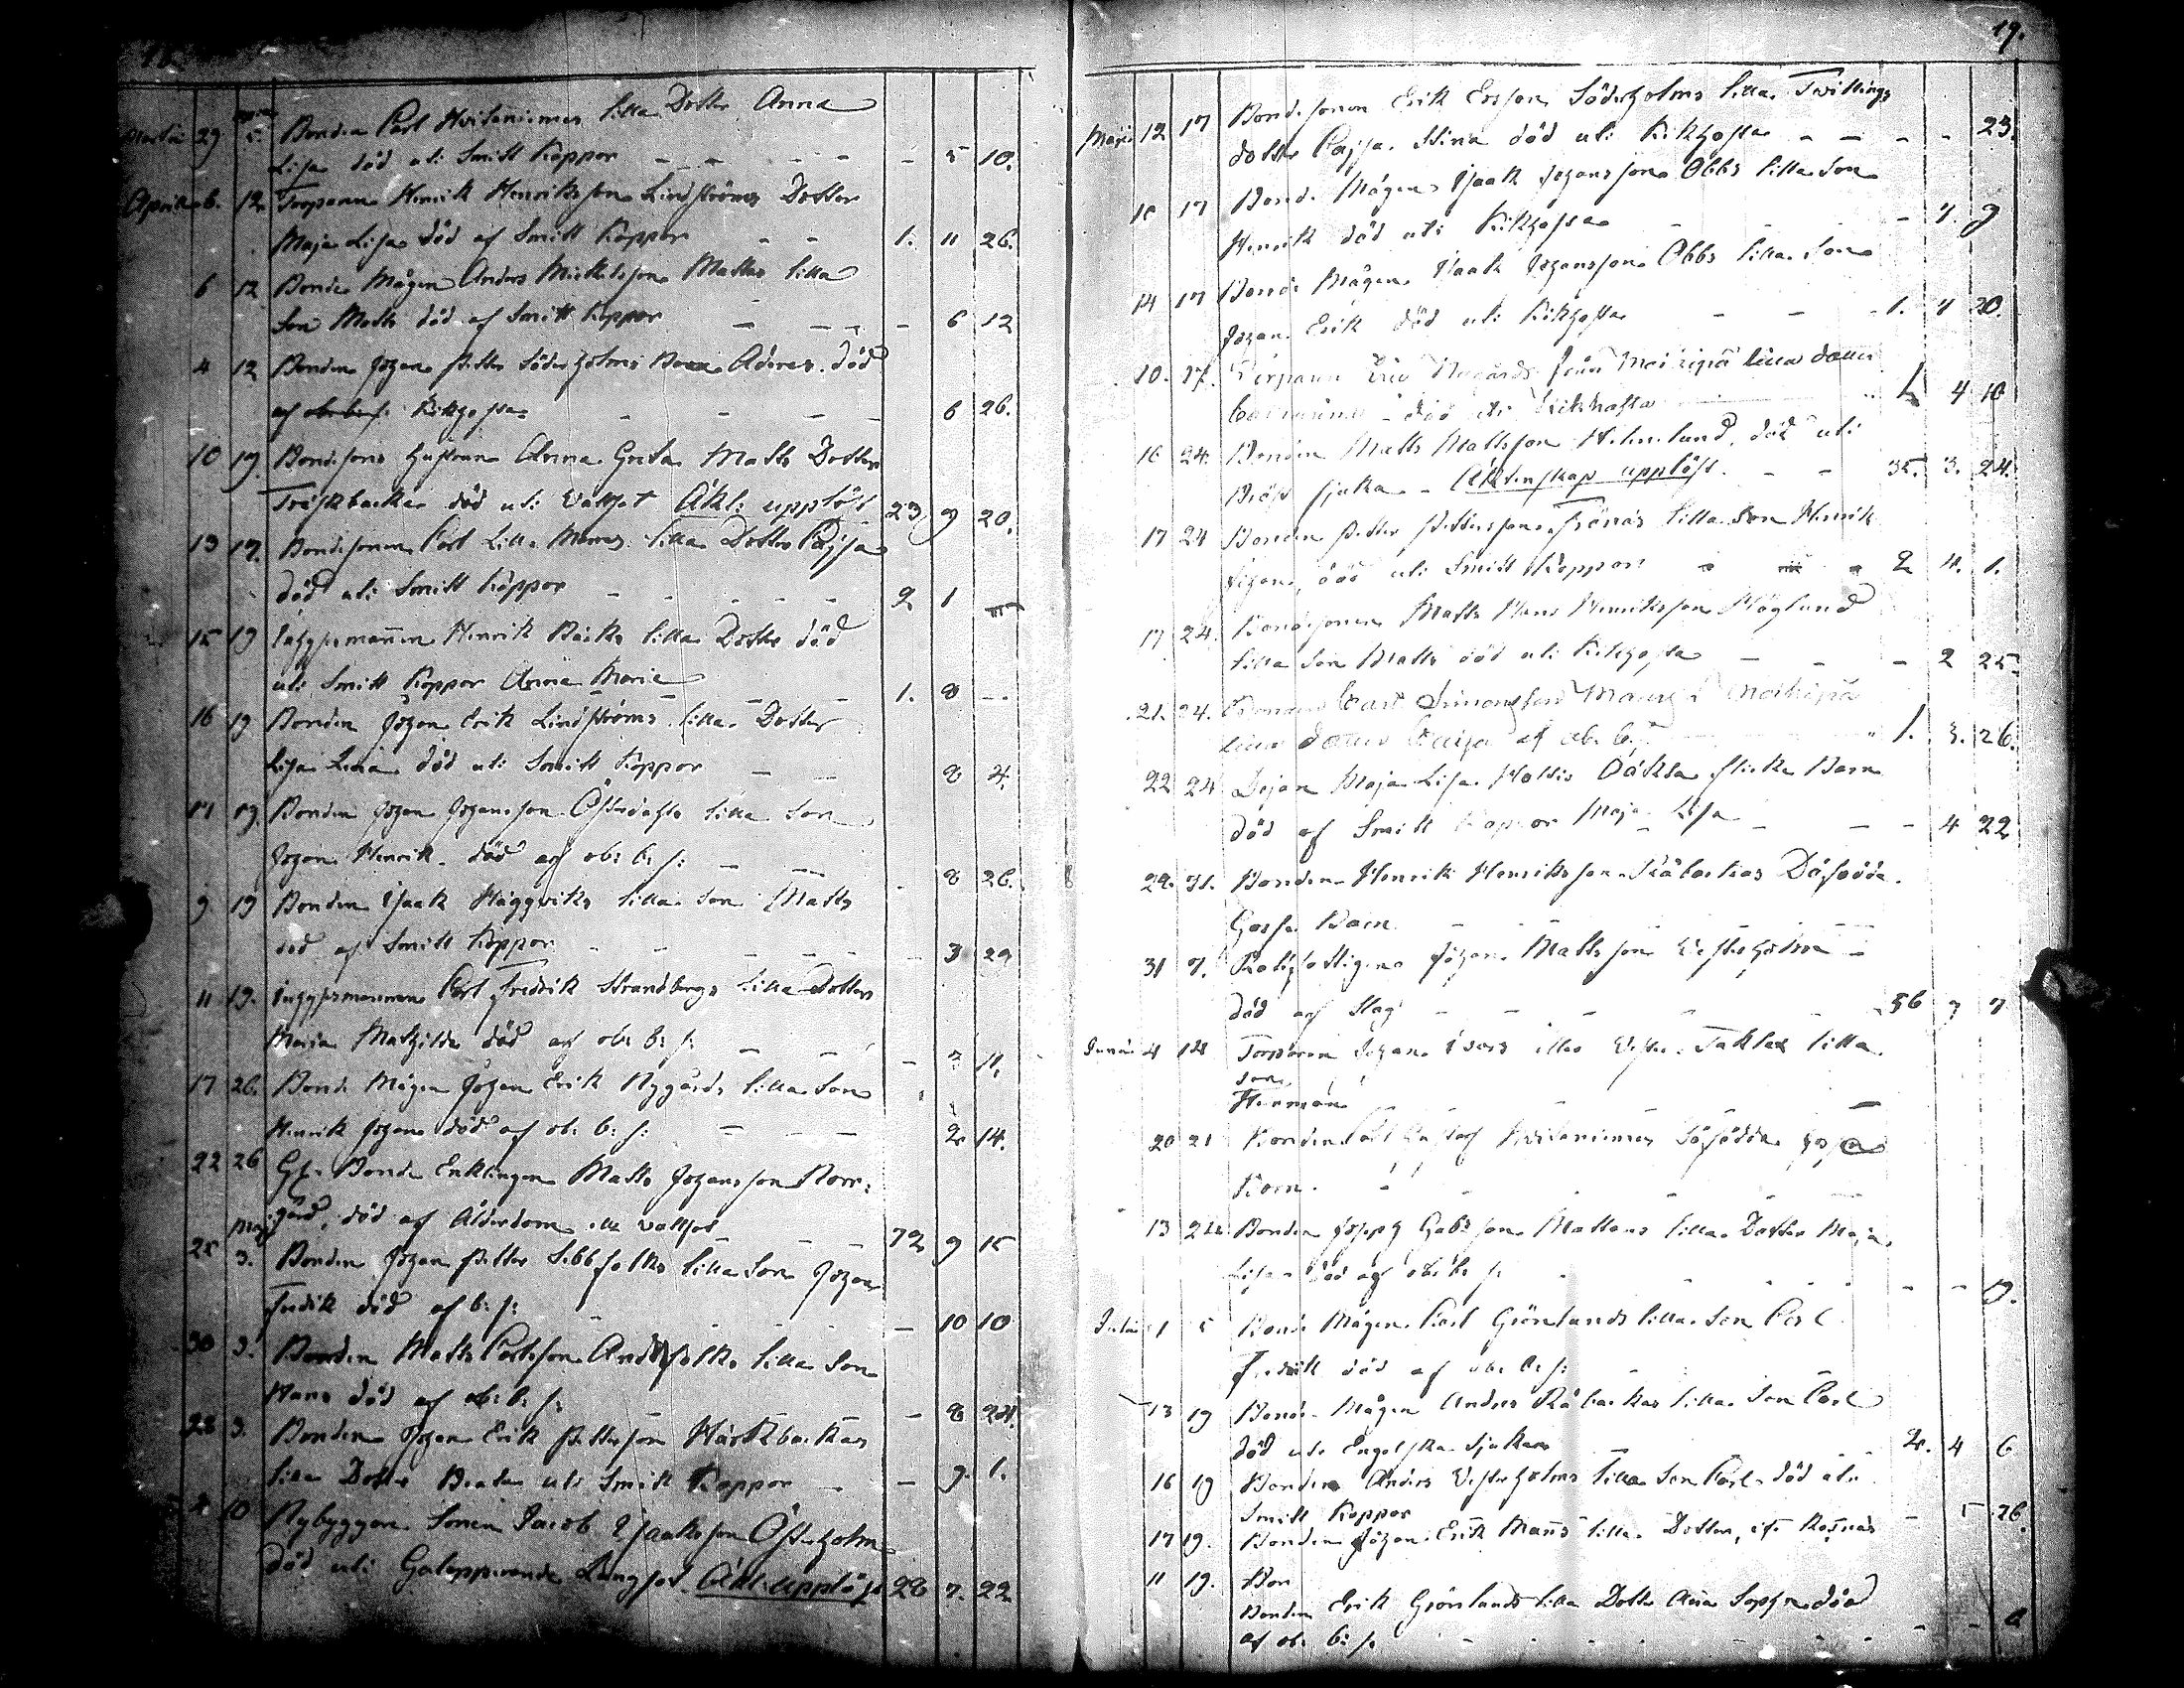 18
Martii 29 5. Bonden Carl Hvitaniemes lilla Dotter Anna
Lisa död uti Smitt Koppor - - - - 5 10.
Aprill 6. 12. Torparen Henrik Henriksson Lindströms Dotter
Maja Lisa död af Smitt Koppor - - 1. 11 26.
6 12 Bonde Mågen Anders Mickelsson Mattas lilla
Son Matts död af Smitt Koppor - - - - 6 12
4 12 Bonden Johan Petter Söderholms Barn död
af Kikhosta - - - - 6 26.
10 19. Bondesons hustrun Anna Greta Matts Dotter
Träskbacka död uti Vattsot Äkt: upplöst 23 9 20.
13 19. Bondesonen Carl Lill Manns lilla Dotter Cajsa
död uti Smitt Koppor - - - - 2 1 -
15 19 Inhysesmannen Henrik Backs lilla Dotter död
uti Smitt Koppor Anna Maria - - - 1. 8 - -
16 19 Bonden Johan Erik Lindströms lilla Dotter
Lisa Lena död uti Smitt Koppor - - 8 4.
17 19. Bonden Johan Johansson Österdahls lilla Son
Johan Henrik död af ob: b: s: - - - 8 26.
9 19 Bonden Isaak Häggviks lilla Son Matts
död af Smitt Koppor - - - - - 3 29
11 19. Inhysesmannen Carl Fredrik Strandbergs lilla Dotter
Maria Mathilda död af ob: b: s: - - - 3 11.
17 26. Bonde Mågen Johan Erik Nygårds lilla Son
Henrik Johan död af ob: b: s: - - - 2 14.
22 26 Gf. Bonde Enklingen Matts Johansson Norr:
gård, död af Ålderdom uti vattsot - - - 72 9 15
Maj
25 3. Bonden Johan Petter Sebbfolks lilla Son Johan
Fredrik död af b: s: - - - - 10 10
30 3. Bonden Matts Carlsson Andersfolks lilla Son
Hans död af ob: b: s: - - - - 8 24.
28 3. Bonden Johan Erik Pettersson Härkbackas
lilla Dotter Beata uti Smitt Koppor - - 9. 1.
2 10 Nybyggare Sonen Jacob Isaaksson Österholm
död uti Galopperande Lungsot. Äkt: upplöst 28 7. 22

19.
Maji 12 17 Bondesonen Erik Ersson Söderholms lilla Tvillings
dotter Cajsa Stina död uti Kikhosta - - - - 23.
10 17 Bonde Mågen Isaak Johansson Obbs lilla Son
Henrik död uti Kikhosta - - - 4. 9
14 17 Bonde Mågen Isaak Johansson Obbs lilla Son
Johan Erik död uti Kikhosta - - - 1. 4 20.
10. 17. Torparen Eric Nygårds från lilla dotter
död uti Kikhosta 1. 4 10
16 24. Bonden Matts Mattsson Holmlund, död uti
Bröst sjuka - Äktenskap upplöst. - - 35. 3. 24.
17 24 Bonden Petter Pettersson Frönäs lilla Son Henrik
Johan, död uti Smitt Koppor - - - 2 4. 1.
17 24. Bondesonen Matts Hans Henriksson Höglund
lilla Son Matts död uti Kikhosta - - - 2 25.
21. 24. Bonden Carl Simonsson Manns
lilla dotter Caisa af ob. b. s. 1. 3. 26.
22 24 Dejan Maja Lisa Oäkta flicke Barn
död af Smitt Koppor Maja Lisa - - - 4 22
29. 31. Bonden Henrik Henriksson Råbackas Dödfödda
Gosse Barn - - - - -
31 7. Rotefattigen Johan Mattsson Vesterholm -
död af Slag - - - - - 56 7 7
Junii 4 14 Torparen Johan Ivars lilla
Son
Herman - - - -
20 21 Bonden Carl Gustaf Hvitaniemes Dödfödda gosse
Barn. - - - - -
13 24 Bonden Joseph Gabrsson Mattans lilla Dotter Maja
Lisa död af ob: b: s: - - - - - 9.
Julii 1 5 Bonde Mågen Carl Grönlunds lilla Son Carl
Fredrik död af ob: b: s:
13 19 Bonde Mågen Anders Råbackas lilla Son Carl
död uti Engelska Sjukan - - 2. 4 6
16 19 Bonden Anders Vesterholms lilla Son Carl död utu
Smitt Koppor - 5 26.
17 19. Bonden Johan Erik Manns lilla Dotter,
11 19. Bonden Erik Grönlunds lilla Dotter Anna Sophia död
af ob: b: s: - - - - - - 6